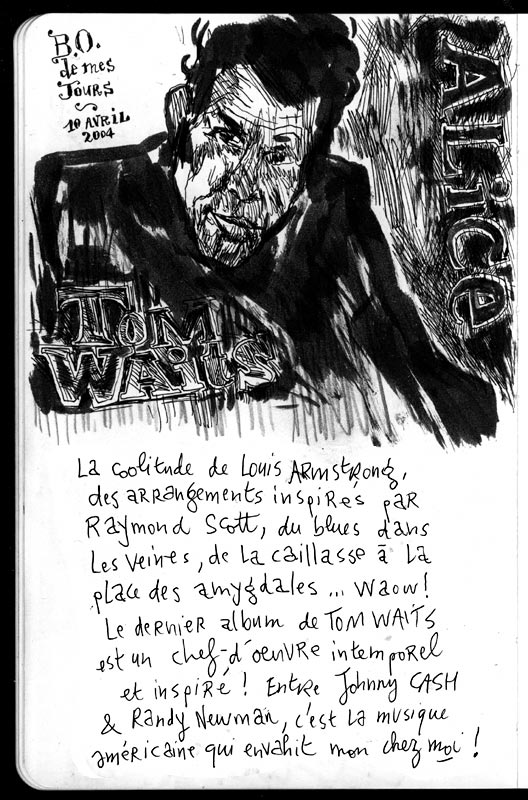 B.O.
de mes
Jours
10 AVRIL
2004
ALiCe
TOM
WAitS
La coolitude de Louis ARMStRONg,
des arrangements inspirés par
Raymond Scott, du blues dans
Les veines, de la caillasse à la
place des amygdales ... waow!
Le dernier album de TOM WAITS
est un chef-d'oeuvre intemporel
et inspiré ! Entre Johnny CASH
& Randy Newman, c'est la musique
américaine qui envahit mon chez moi !